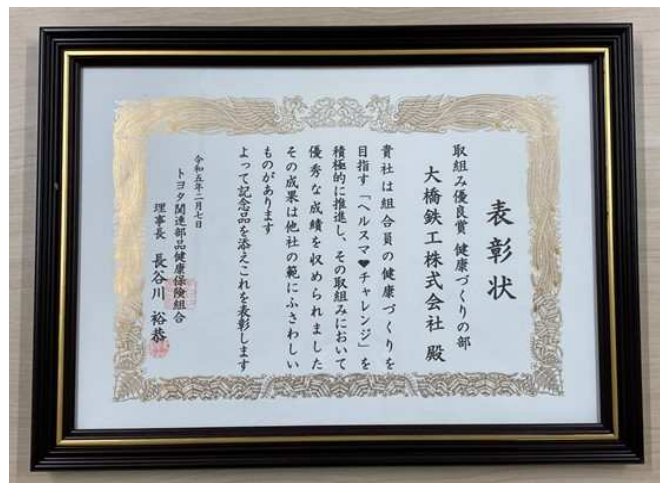 表彰状
取組み優良賞 健康づくりの部
大橋鉄工株式会社 殿
貴社は組合員の健康づくりを
目指す「ヘルスマ♥チャレンジ」を
積極的に推進し、その取組みにおいて
優秀な成績を収められました
その成果は他社の範にふさわしい
ものがあります
よって記念品を添えこれを表彰します
令和五年二月七日
トヨタ関連部品健康保険組合
理事長 長谷川 裕恭